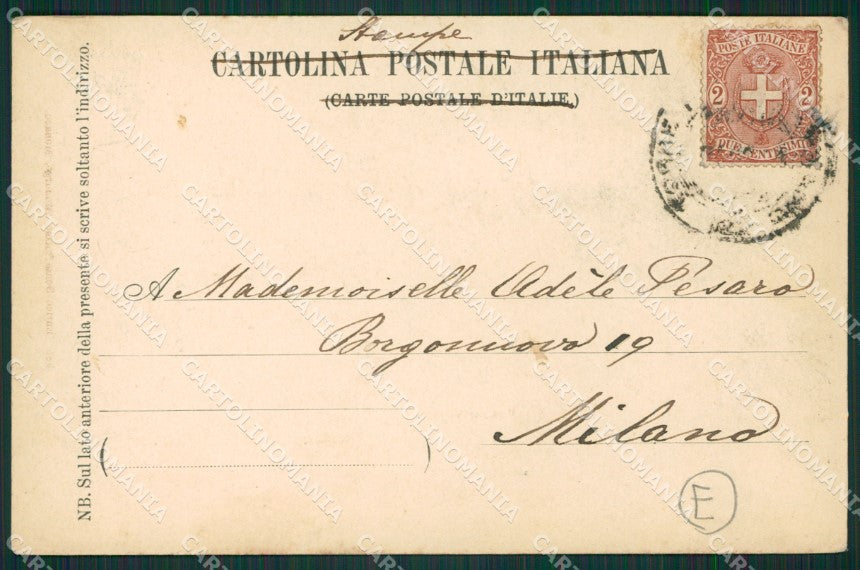 Stampe
CARTOLINA POSTALE ITALIANA
(CARTE POSTALE D'ITALIE.)
POSTE ITALIANE
2 2
DUE CENTESIMI
NB. Sul lato anteriore della presente si scrive soltanto l'indirizzo.
A Mademoiselle Adèle Pesaro
Borgonuovo 19
Milano
E
CARTOLINOMANIA